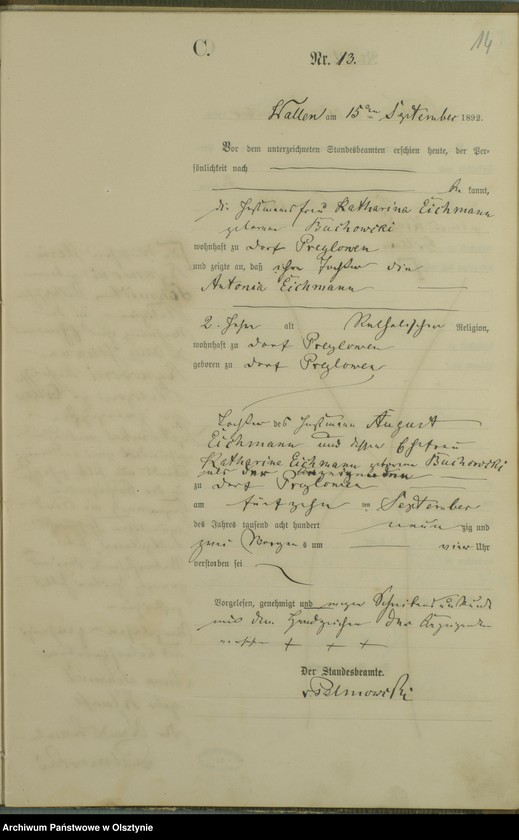 14
C.
Nr. 13.
Wallen am 15ten September 1892.
Vor dem unterzeichneten Standesbeamten erschien heute, der Per-
sönlichkeit nach
be kannt,
die Instmannsfrau Katharina Eichmann
geborene Buchowski
wohnhaft zu Dorf Preylowen
und zeigte an, daß ihre Tochter die
Antonia Eichmann
2 Jahr alt Katholischer Religion,
wohnhaft zu Dorf Preylowen
geboren zu Dorf Preylowen
Tochter des Instmann August
Eichmann und dessen Ehefrau
Katharina Eichmann geborene Buchowski
zu Dorf Preylowen
am fünfzehn ten September
des Jahres tausend acht hundert neun zig und
zwei Morgen s um vier Uhr
verstorben sei
Vorgelesen, genehmigt und wegen Schreibensunkunde
mit dem Handzeichen der Anzeigenden
versehen + + +
Der Standesbeamte.
Archiwum Państwowe w Olsztynie